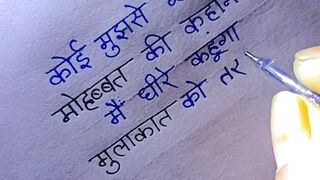 कोई मुझसे
मोहब्बत की
मैं धीरे कहूंगा
मुलाकात को तर